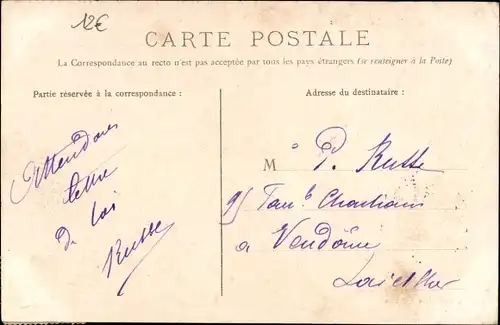 12€
CARTE POSTALE
La Correspondance au recto n'est pas acceptée par tous les pays étrangers (se renseigner à la Poste)
Partie réservée à la correspondance :
Adresse du destinataire :
Attendons
lettre
de toi
Russe
M P. Russe
à Vendôme
Loir et Cher